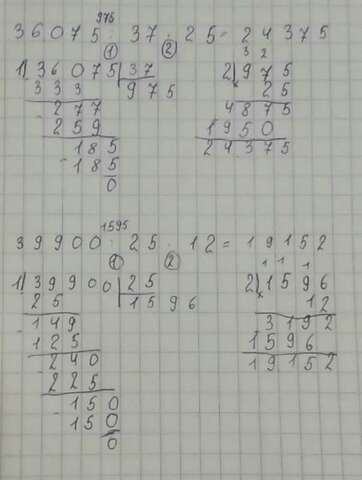 975
36075 : 37 · 25 = 24375
① ②
1) 36075 | 37
333 975
277
- 259
185
- 185
0
3 2
2) 975
× 25
4875
1950
24375
1595
39900 : 25 · 12 = 19152
① ②
1) 39900 | 25
25 1596
- 149
125
- 240
225
- 150
150
0
1 1 1
2) 1596
× 12
3192
1596
19152